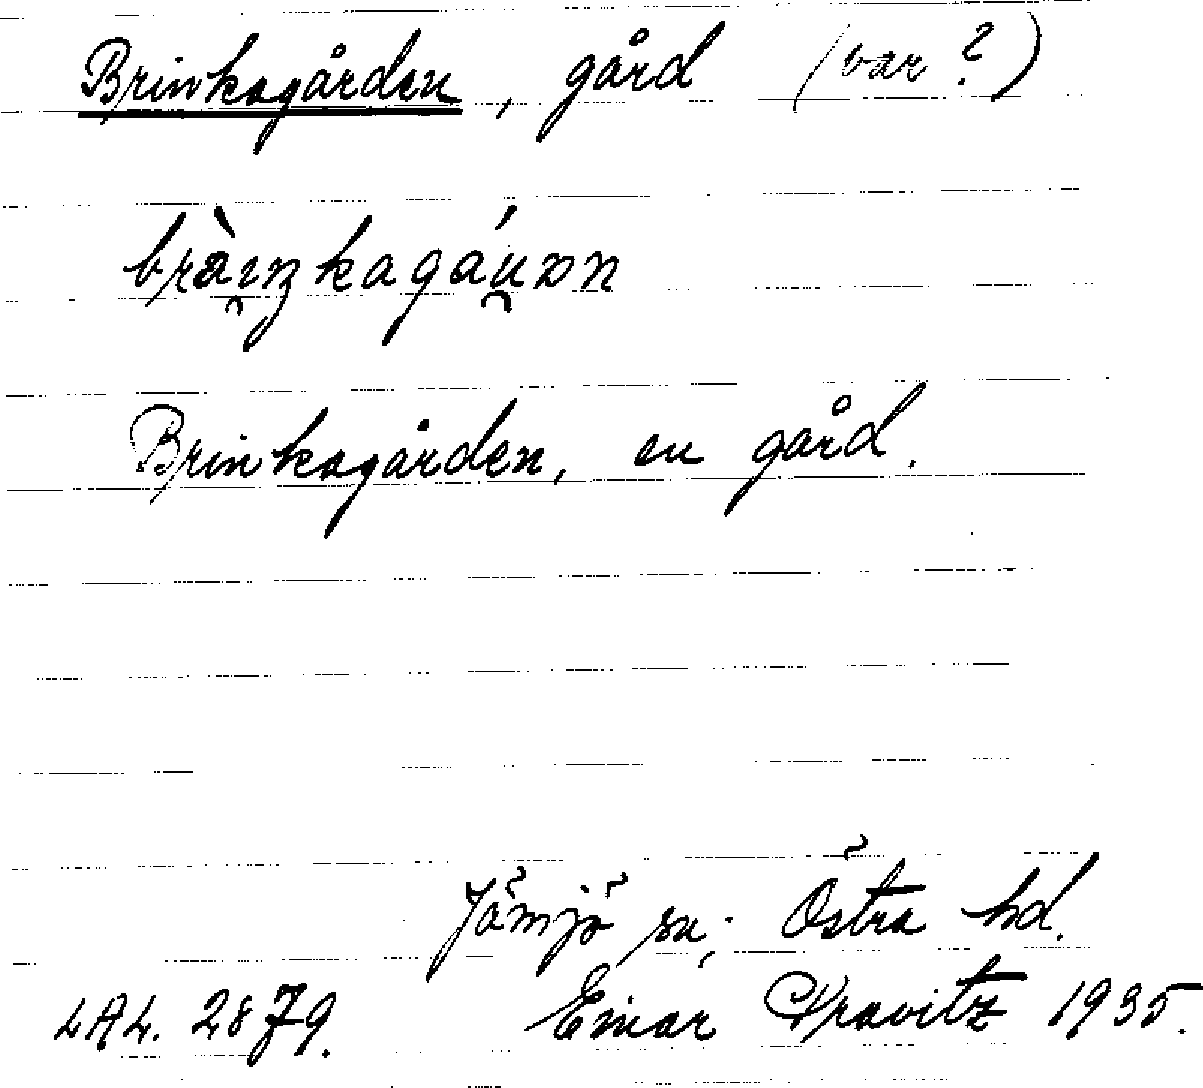 Brinkagården, gård (var?)
bràı̯ŋkagáu̯ɒn
Brinkagården, en gård.
Jämjö sn; Östra hd.
LAL. 2879. Einar Kravitz 1935.